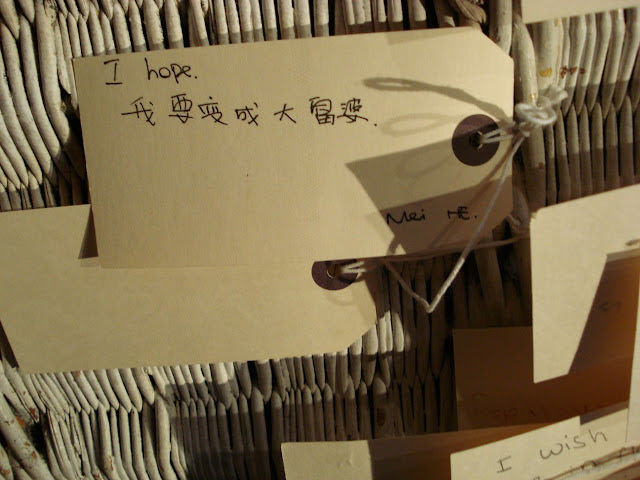 I hope.
我要变成大富婆.
Mei HE.
I wish